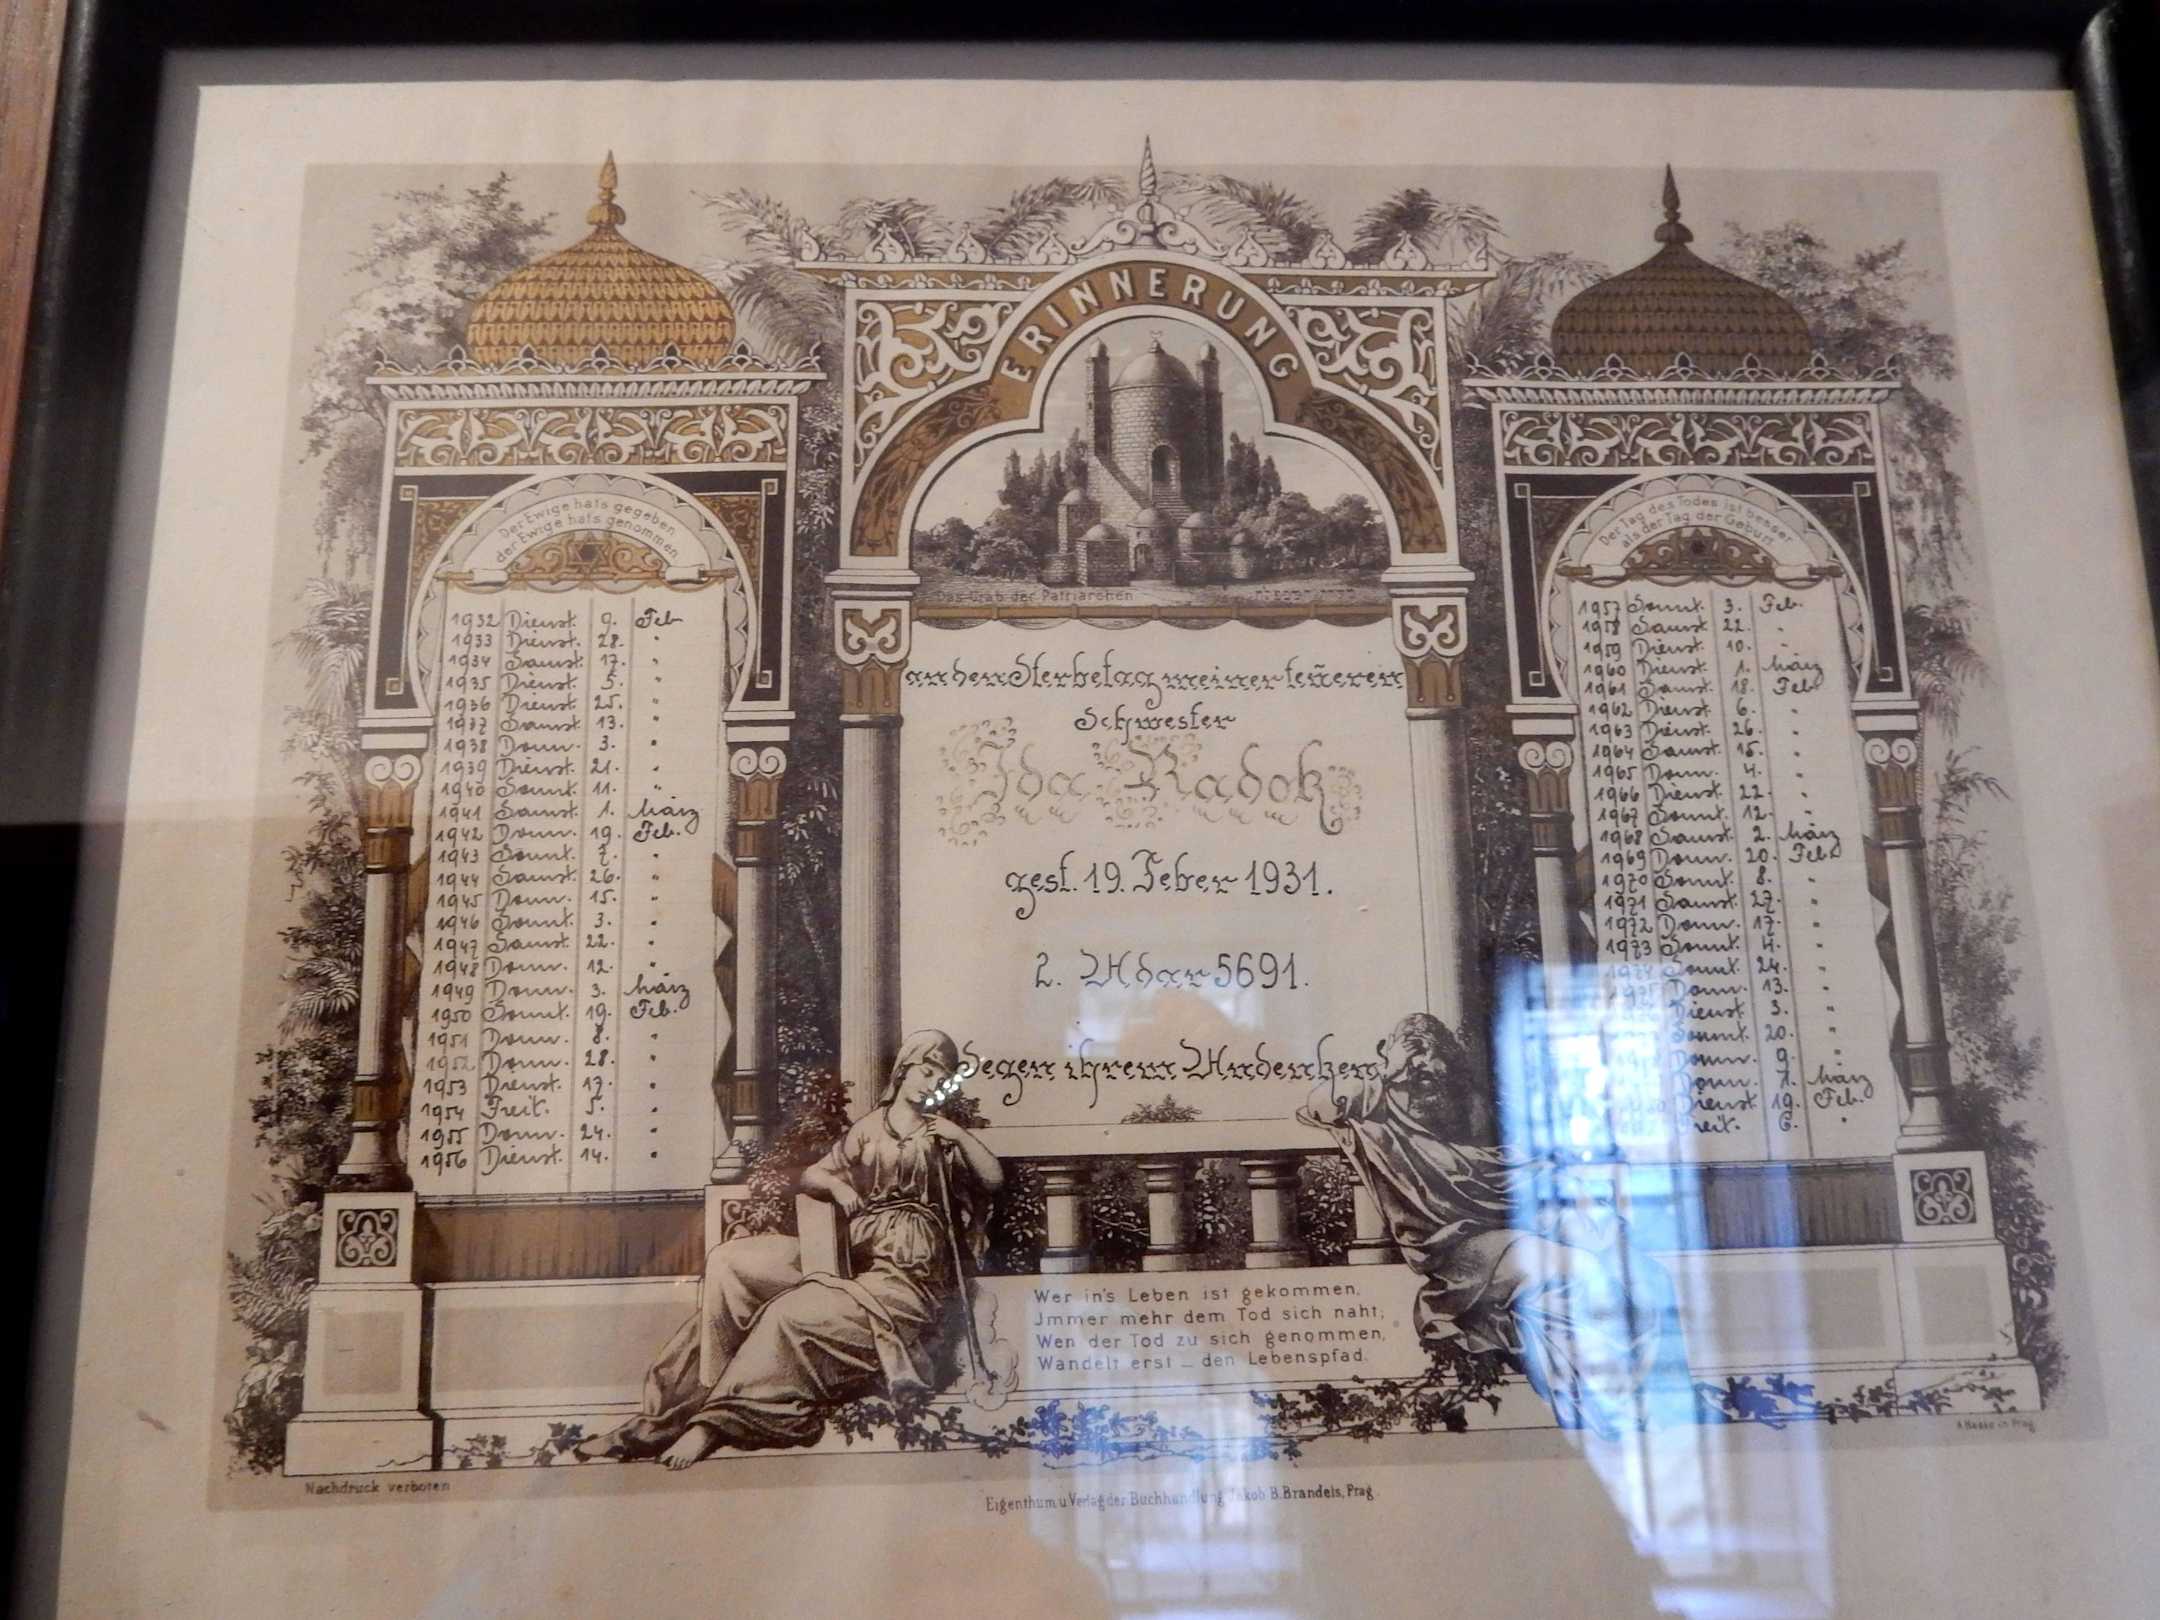 ERINNERUNG
Der Ewige hats gegeben
der Ewige hats genommen
1932 Dienst. 9. Feb
1933 Dienst. 28. "
1934 Samst. 17. "
1935 Dienst. 5. "
1936 Dienst. 25. "
1937 Samst. 13. "
1938 Donn. 3. "
1939 Dienst. 21. "
1940 Sonnt. 11. "
1941 Samst. 1. März
1942 Donn. 19. Feb.
1943 Sonnt. 7. "
1944 Samst. 26. "
1945 Donn. 15. "
1946 Sonnt. 3. "
1947 Samst. 22. "
1948 Donn. 12. "
1949 Donn. 3. März
1950 Sonnt. 19. Feb.
1951 Donn. 8. "
1952 Donn. 28. "
1953 Dienst. 17. "
1954 Freit. 5. "
1955 Donn. 24. "
1956 Dienst. 14. "
Das Grab der Patriarchen
an den Sterbetag meiner teüeren
Schwester
Ida Radok
gest. 19. Feber 1931.
2. Adar 5691.
Segen ihrem Andenken!
Wer in's Leben ist gekommen,
Jmmer mehr dem Tod sich naht;
Wen der Tod zu sich genommen,
Wandelt erst _ den Lebenspfad.
Der Tag des Todes ist besser
als der Tag der Geburt
1957 Sonnt. 3. Feb.
1958 Samst. 22. "
1959 Dienst. 10. "
1960 Dienst. 1. März
1961 Samst. 18. Feb.
1962 Dienst. 6. "
1963 Dienst. 26. "
1964 Samst. 15. "
1965 Donn. 4. "
1966 Dienst. 22. "
1967 Sonnt. 12. "
1968 Samst. 2. März
1969 Donn. 20. Feb.
1970 Sonnt. 8. "
1971 Samst. 27. "
1972 Donn. 17. "
1973 Sonnt. 4. "
1974 Sonnt. 24. "
1975 Donn. 13. "
Dienst. 3. "
Sonnt. 20. "
Donn. 9. "
Donn. 1. März
Dienst. 19. Feb.
Freit. 6. "
Nachdruck verboten
Eigenthum u. Verlag der Buchhandlung Jakob B. Brandeis, Prag.
A Haase in Prag